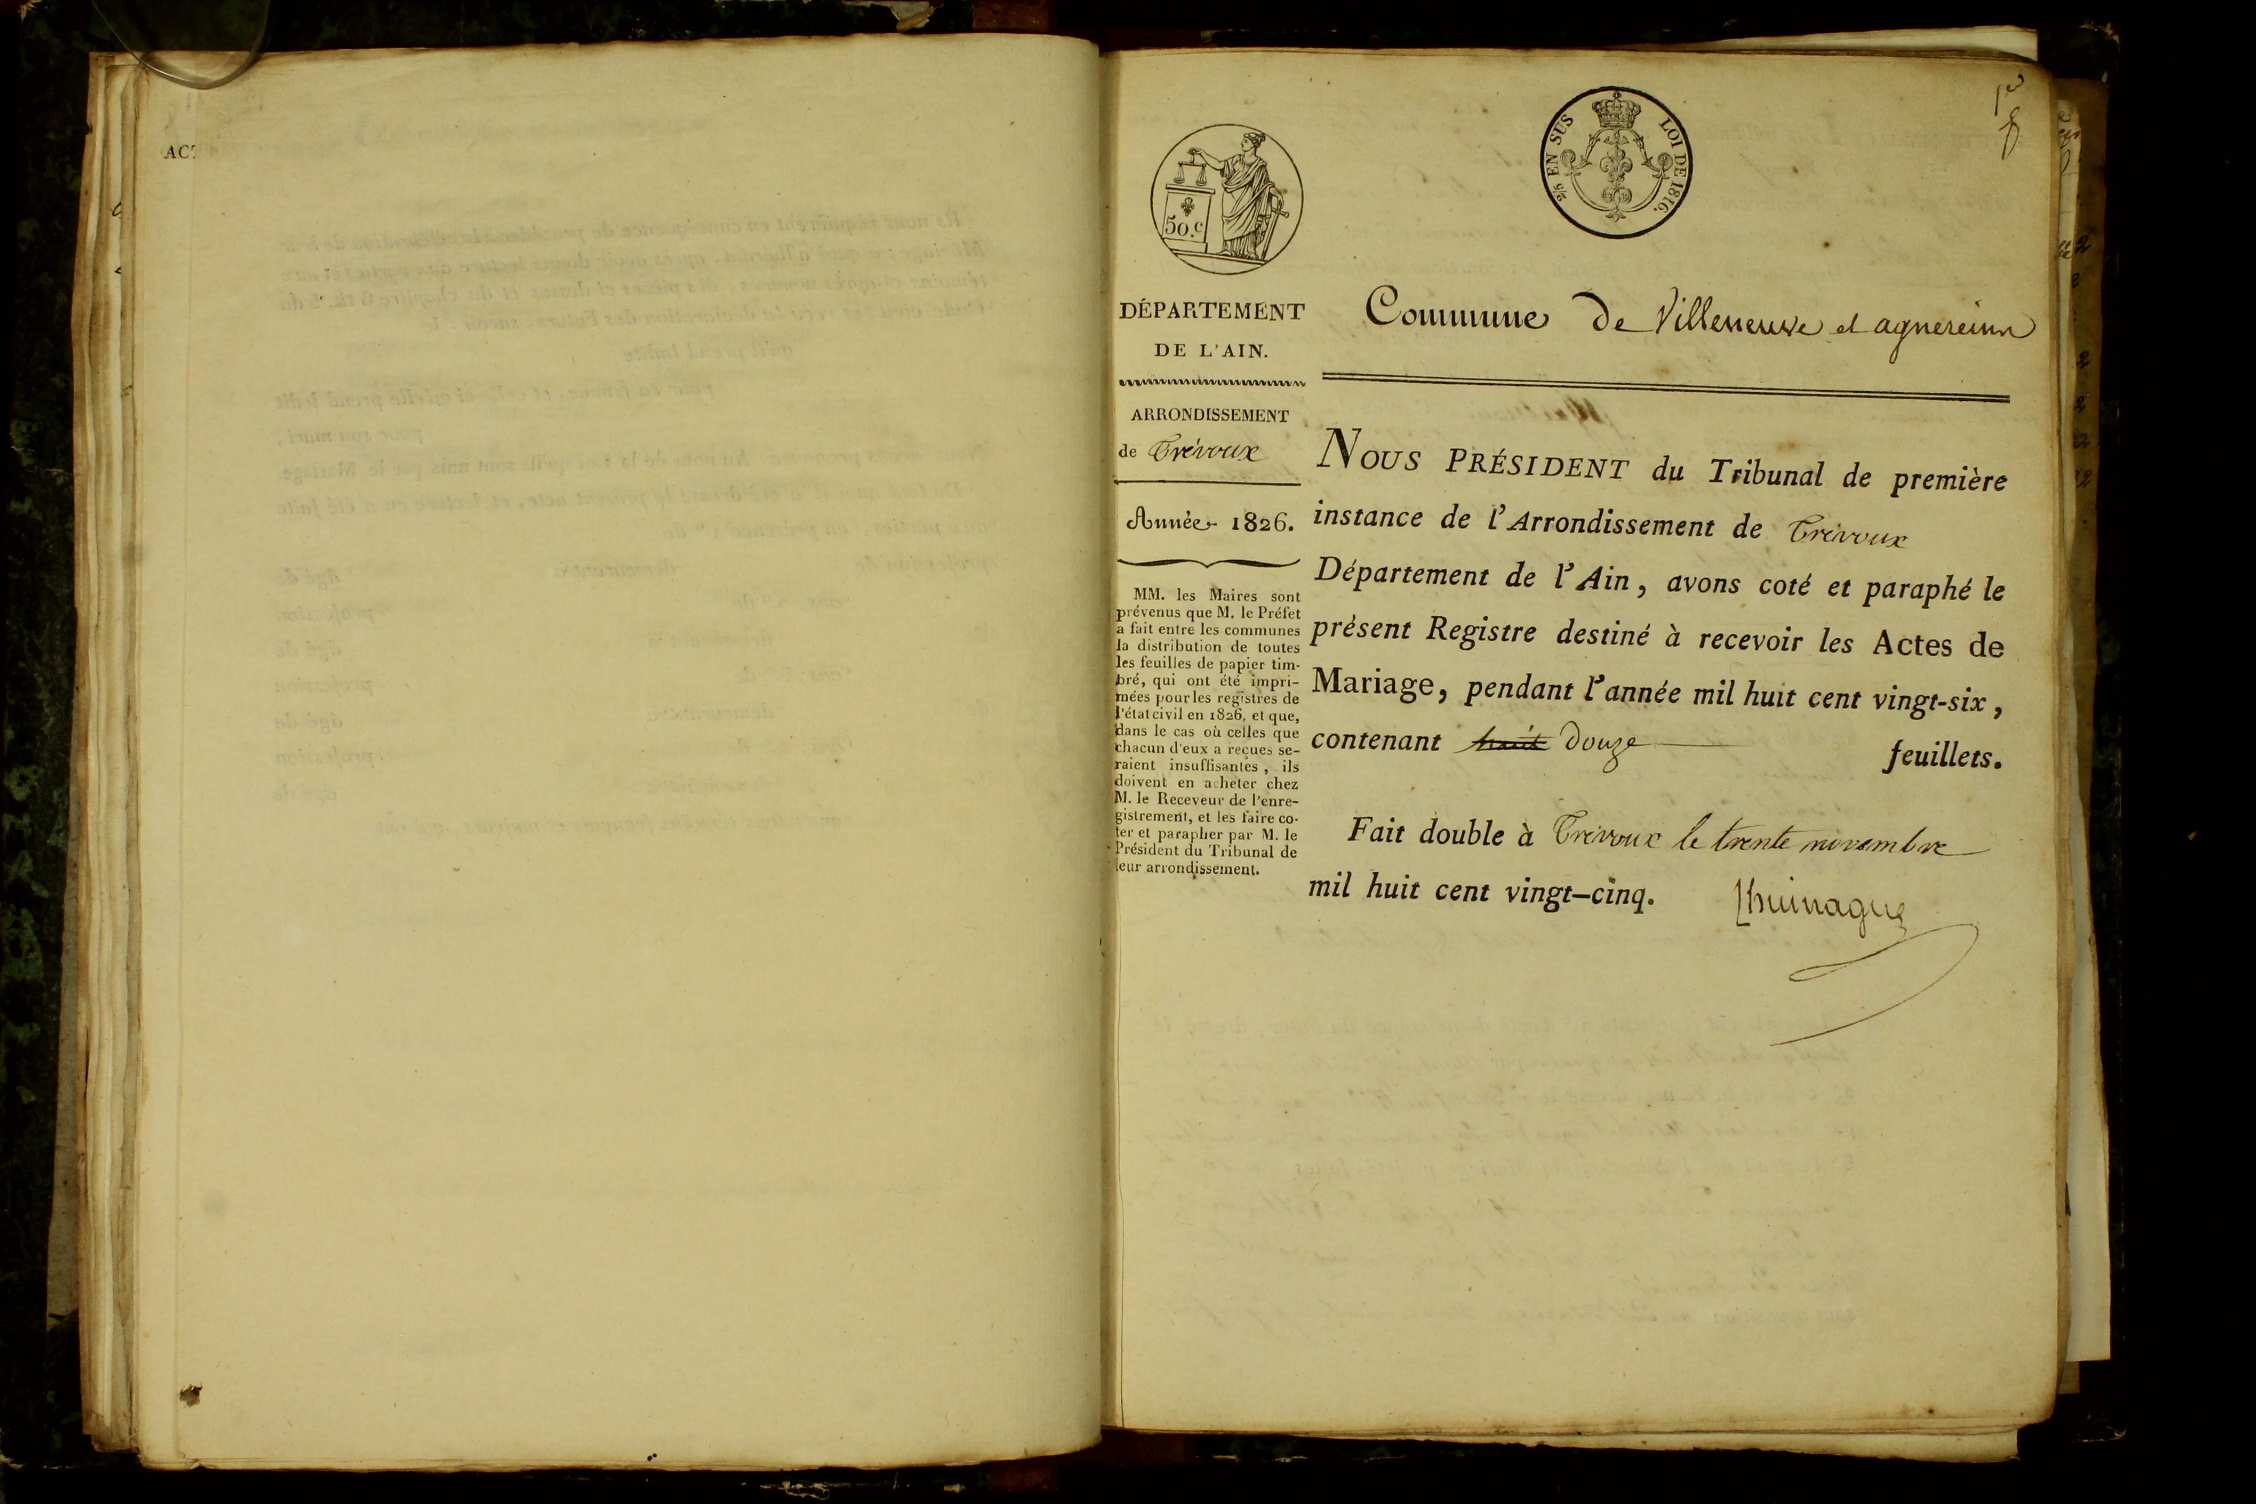 AC
1er
50.c
2/5 EN SUS
LOI DE 1816.
DÉPARTEMENT
DE L'AIN.
ARRONDISSEMENT
de Trévoux
Année 1826.
MM. les Maires sont
prévenus que M. le Préfet
a fait entre les communes
la distribution de toutes
les feuilles de papier tim-
bré, qui ont été impri-
mées pour les registres de
l'état civil en 1826, et que,
dans le cas où celles que
chacun d'eux a reçues se-
raient insuffisantes, ils
doivent en acheter chez
M. le Receveur de l'enre-
gistrement, et les faire co-
ter et parapher par M. le
Président du Tribunal de
leur arrondissement.
Commune de Villeneuve et agnereinn
NOUS PRÉSIDENT du Tribunal de première
instance de l'Arrondissement de Trévoux
Département de l'Ain, avons coté et paraphé le
présent Registre destiné à recevoir les Actes de
Mariage, pendant l'année mil huit cent vingt-six,
contenant huit douze feuillets.
Fait double à Trévoux le trente novembre
mil huit cent vingt-cinq.